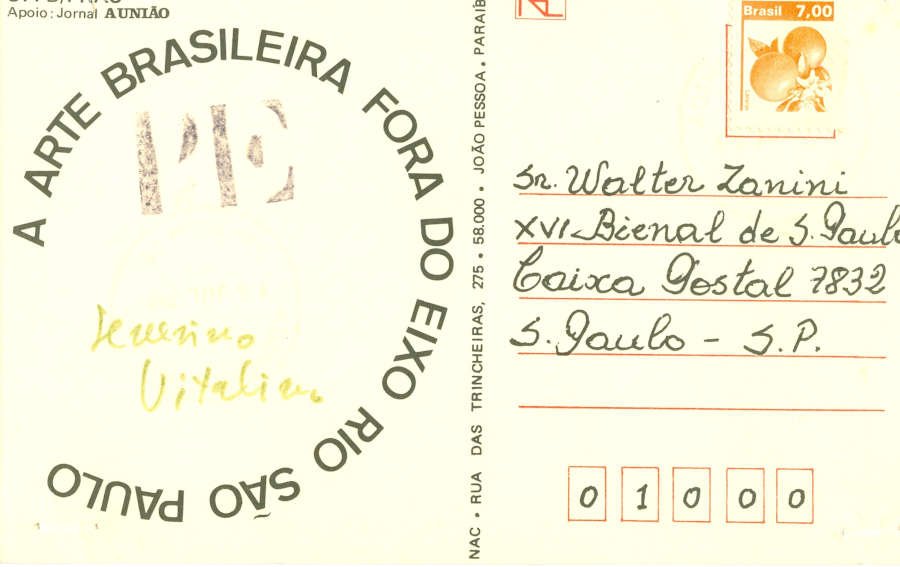 Apoio: Jornal A UNIÃO
A ARTE BRASILEIRA FORA DO EIXO RIO SÃO PAULO
PE
Severino
Vitalino
NAC • RUA DAS TRINCHEIRAS, 275 • 58.000 • JOÃO PESSOA • PARAÍB
Brasil 7,00
Sr. Walter Zanini
XVI Bienal de S. Paulo
Caixa Postal 7832
S. Paulo - S.P.
0 1 0 0 0